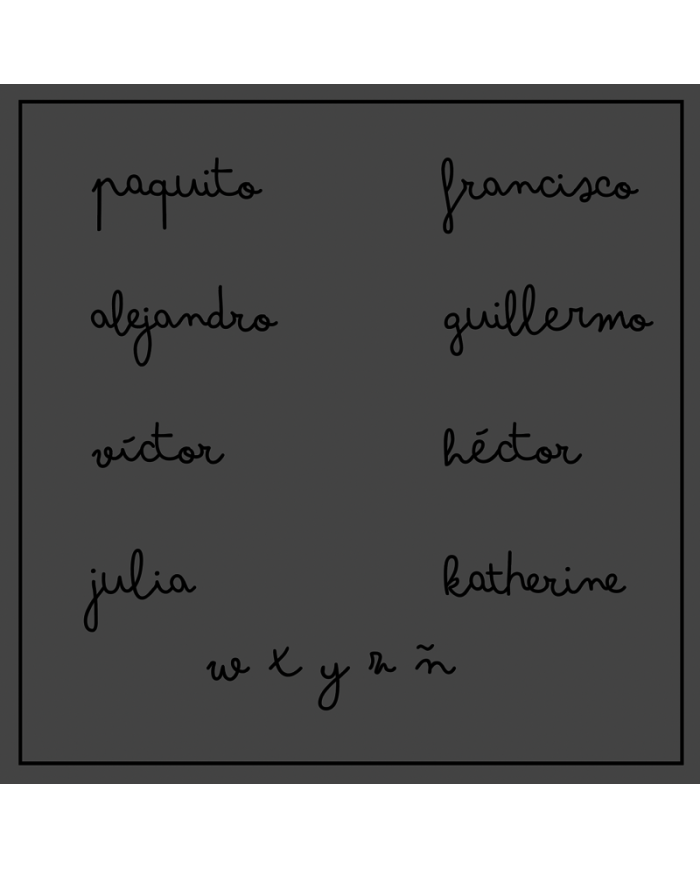 paquito francisco
alejandro guillermo
víctor héctor
julia katherine
w x y z ñ